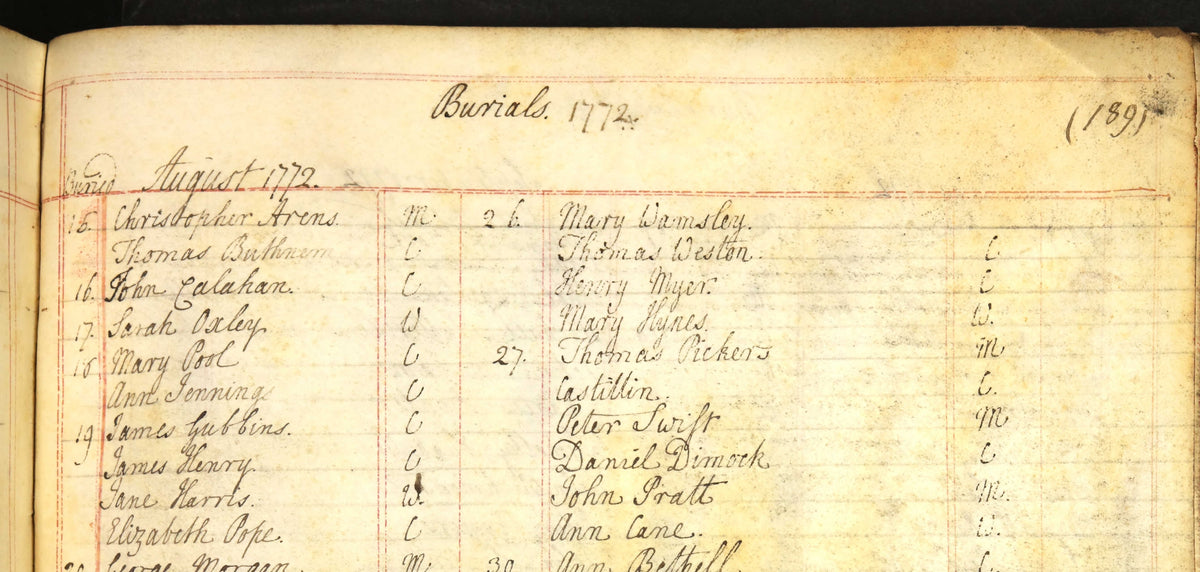 Burials. 1772.
(189)
Buried August 1772.
15. Christopher Arens. M.
Thomas Buthnem C
16. John Calahan. C
17. Sarah Oxley W
Mary Pool C
Ann Jennings C
19 James Gubbins. C
James Henry. C
Jane Harris. W.
Elizabeth Pope. C
20 George Morgan. M.
26. Mary Wamsley.
Thomas Weston. C
Henry Myer. C
Mary Hynes. W.
27. Thomas Pickers M
Castillin. C.
Peter Swift M
Daniel Dimock C
John Pratt M.
Ann Cane. W.
30 Ann Bethell. C.